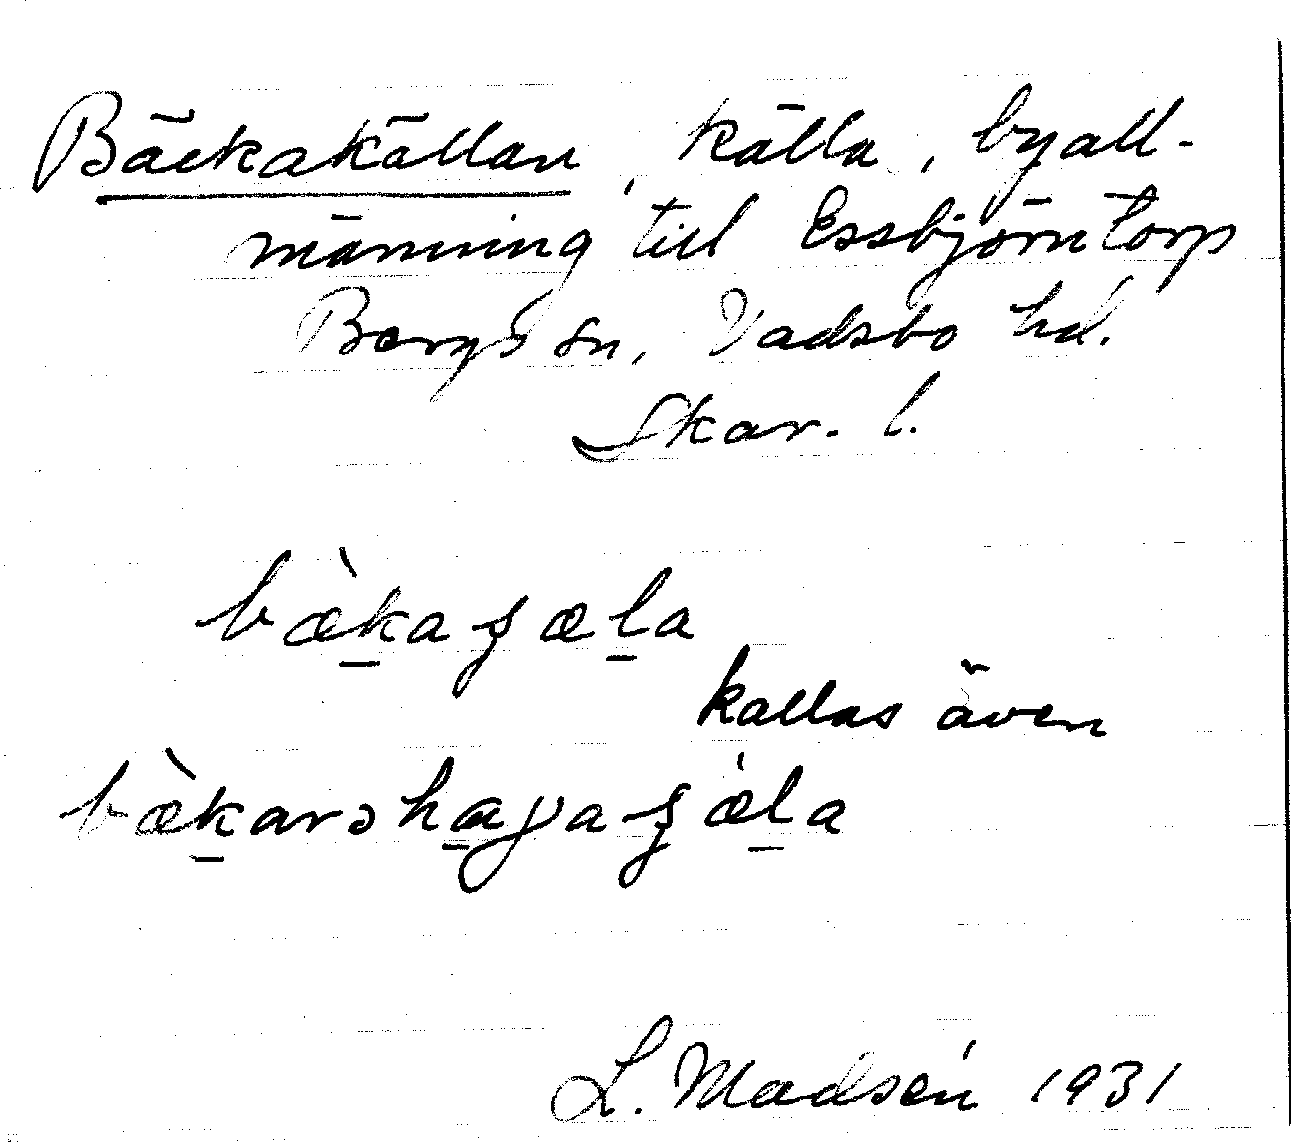 Bäckakällan, källa, byall-
männing till Essbjörntorp
Bergs sn, Vadsbo hd.
Skar. l.
bæ̀k̲aʂæl̲a
kallas även
bæ̀k̲arsha̲gaʂæ̀l̲a
L. Madsén 1931